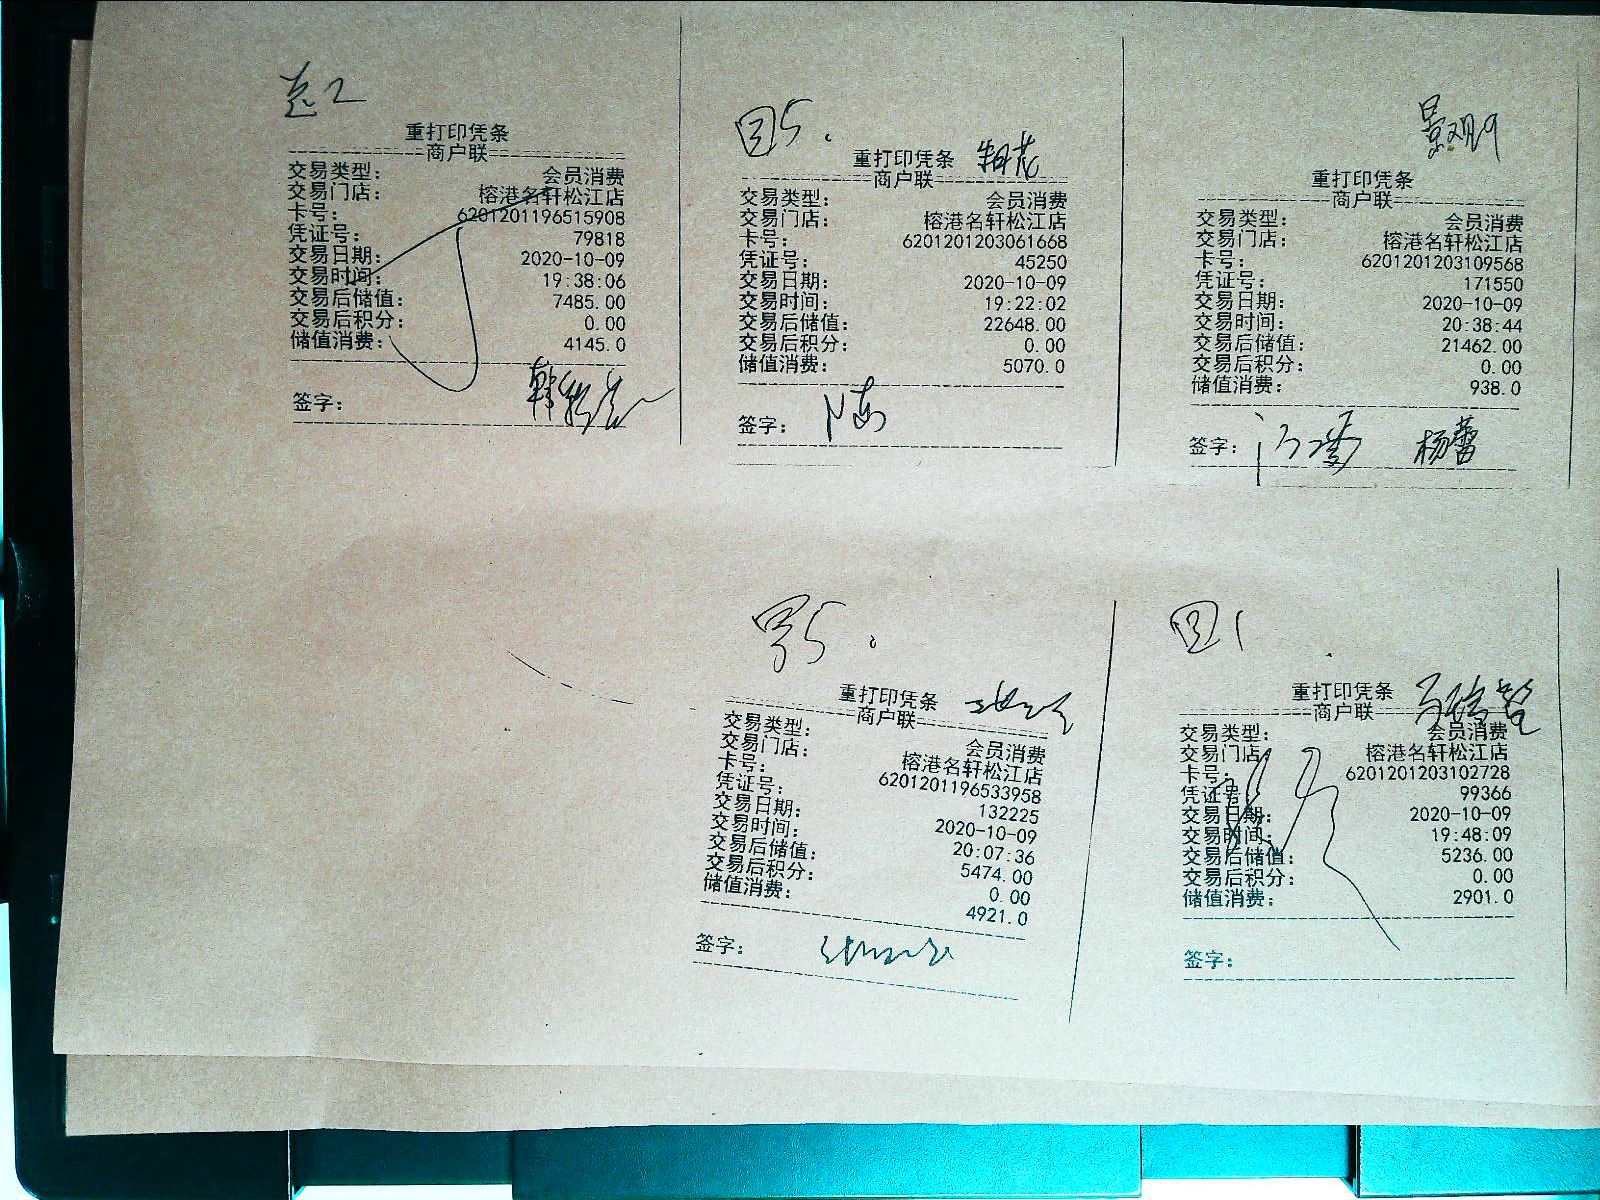 重打印凭条
商户联
交易类型： 会员消费
交易门店： 榕港名轩松江店
卡号： 6201201196515908
凭证号： 79818
交易日期： 2020-10-09
交易时间： 19:38:06
交易后储值： 7485.00
交易后积分： 0.00
储值消费： 4145.0
签字：
重打印凭条
商户联
交易类型： 会员消费
交易门店： 榕港名轩松江店
卡号： 6201201203061668
凭证号： 45250
交易日期： 2020-10-09
交易时间： 19:22:02
交易后储值： 22648.00
交易后积分： 0.00
储值消费： 5070.0
签字：
景观9
重打印凭条
商户联
交易类型： 会员消费
交易门店： 榕港名轩松江店
卡号： 6201201203109568
凭证号： 171550
交易日期： 2020-10-09
交易时间： 20:38:44
交易后储值： 21462.00
交易后积分： 0.00
储值消费： 938.0
签字： 杨蕾
重打印凭条
商户联
交易类型： 会员消费
交易门店： 榕港名轩松江店
卡号： 6201201196533958
凭证号： 132225
交易日期： 2020-10-09
交易时间： 20:07:36
交易后储值： 5474.00
交易后积分： 0.00
储值消费： 4921.0
签字：
重打印凭条
商户联
交易类型： 会员消费
交易门店： 榕港名轩松江店
卡号： 6201201203102728
凭证号： 99366
交易日期： 2020-10-09
交易时间： 19:48:09
交易后储值： 5236.00
交易后积分： 0.00
储值消费： 2901.0
签字：